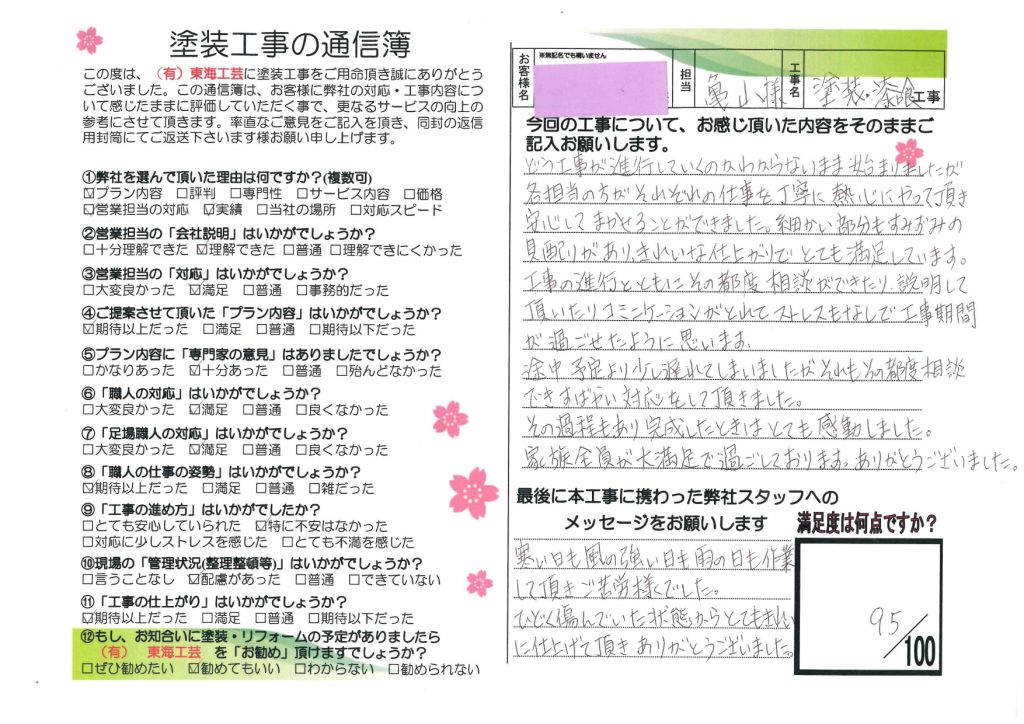 塗装工事の通信簿
この度は、（有）東海工芸に塗装工事をご用命頂き誠にありがとう
ございました。この通信簿は、お客様に弊社の対応・工事内容につ
いて感じたままに評価していただく事で、更なるサービスの向上の
参考にさせて頂きます。率直なご意見をご記入を頂き、同封の返信
用封筒にてご返送下さいます様お願い申し上げます。
①弊社を選んで頂いた理由は何ですか?(複数可)
☑プラン内容 □評判 □専門性 □サービス内容 □価格
☑営業担当の対応 ☑実績 □当社の場所 □対応スピード
②営業担当の「会社説明」はいかがでしょうか?
□十分理解できた ☑理解できた □普通 □理解できにくかった
③営業担当の「対応」はいかがでしょうか?
□大変良かった ☑満足 □普通 □事務的だった
④ご提案させて頂いた「プラン内容」はいかがでしょうか?
☑期待以上だった □満足 □普通 □期待以下だった
⑤プラン内容に「専門家の意見」はありましたでしょうか?
□かなりあった ☑十分あった □普通 □殆んどなかった
⑥「職人の対応」はいかがでしょうか?
□大変良かった ☑満足 □普通 □良くなかった
⑦「足場職人の対応」はいかがでしょうか?
□大変良かった ☑満足 □普通 □良くなかった
⑧「職人の仕事の姿勢」はいかがでしょうか?
☑期待以上だった □満足 □普通 □雑だった
⑨「工事の進め方」はいかがでしたか?
□とても安心していられた ☑特に不安はなかった
□対応に少しストレスを感じた □とても不満を感じた
⑩現場の「管理状況(整理整頓等)」はいかがでしょうか?
□言うことなし ☑配慮があった □普通 □できていない
⑪「工事の仕上がり」はいかがでしょうか?
☑期待以上だった □満足 □普通 □期待以下だった
⑫もし、お知合いに塗装・リフォームの予定がありましたら
（有）　東海工芸　を「お勧め」頂けますでしょうか?
□ぜひ勧めたい ☑勧めてもいい □わからない □勧められない
お客様名 ※無記名でも構いません 担当 亀山様 工事名 塗装、漆喰工事
今回の工事について、お感じ頂いた内容をそのままご
記入お願いします。
どう工事が進行していくのかわからないまま始まりましたが
各担当の方がそれぞれの仕事を丁寧に熱心にやって頂き
安心してまかせることができました。細かい部分もすみずみの
見配りがあり、きれいな仕上がりでとても満足しています。
工事の進行とともにその都度相談ができたり、説明して
頂いたりコミニケーションがとれてストレスもなしで工事期間
が過ごせたように思います。
途中予定より少し遅れてしまいましたがそれもその都度相談
できすばやい対応をして頂きました。
その過程もあり完成したときはとても感動しました。
家族全員が大満足で過ごしております。ありがとうございました。
最後に本工事に携わった弊社スタッフへの
メッセージをお願いします
寒い日も風の強い日も雨の日も作業
して頂きご苦労様でした。
ひどく傷んでいた状態からとてもきれい
に仕上げて頂きありがとうございました。
満足度は何点ですか?
95/100